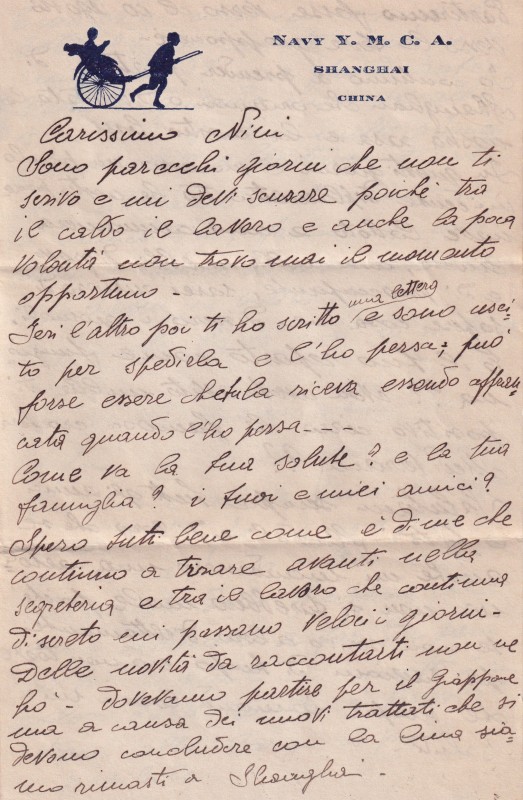 NAVY Y. M. C. A.
SHANGHAI
CHINA
Carissimo Nini
Sono parecchi giorni che non ti
scrivo e mi devi scusare poichè tra
il caldo il lavoro e anche la poca
volontà non trovo mai il momento
opportuno -
Ieri l'altro poi ti ho scritto una lettera e sono usci-
to per spedirla e l'ho persa; può
forse essere che tu la riceva essendo affran-
cata quando l'ho persa - - -
Come va la tua salute? e la tua
famiglia? i tuoi e miei amici?
Spero tutti bene come è di me che
continuo a tirare avanti nella
segreteria e tra il lavoro che continua
discreto mi passano veloci i giorni -
Delle novità da raccontarti non ne
ho - dovevamo partire per il Giappone
ma a causa dei nuovi trattati che si
devono concludere con la Cina sia-
mo rimasti a Shanghai -